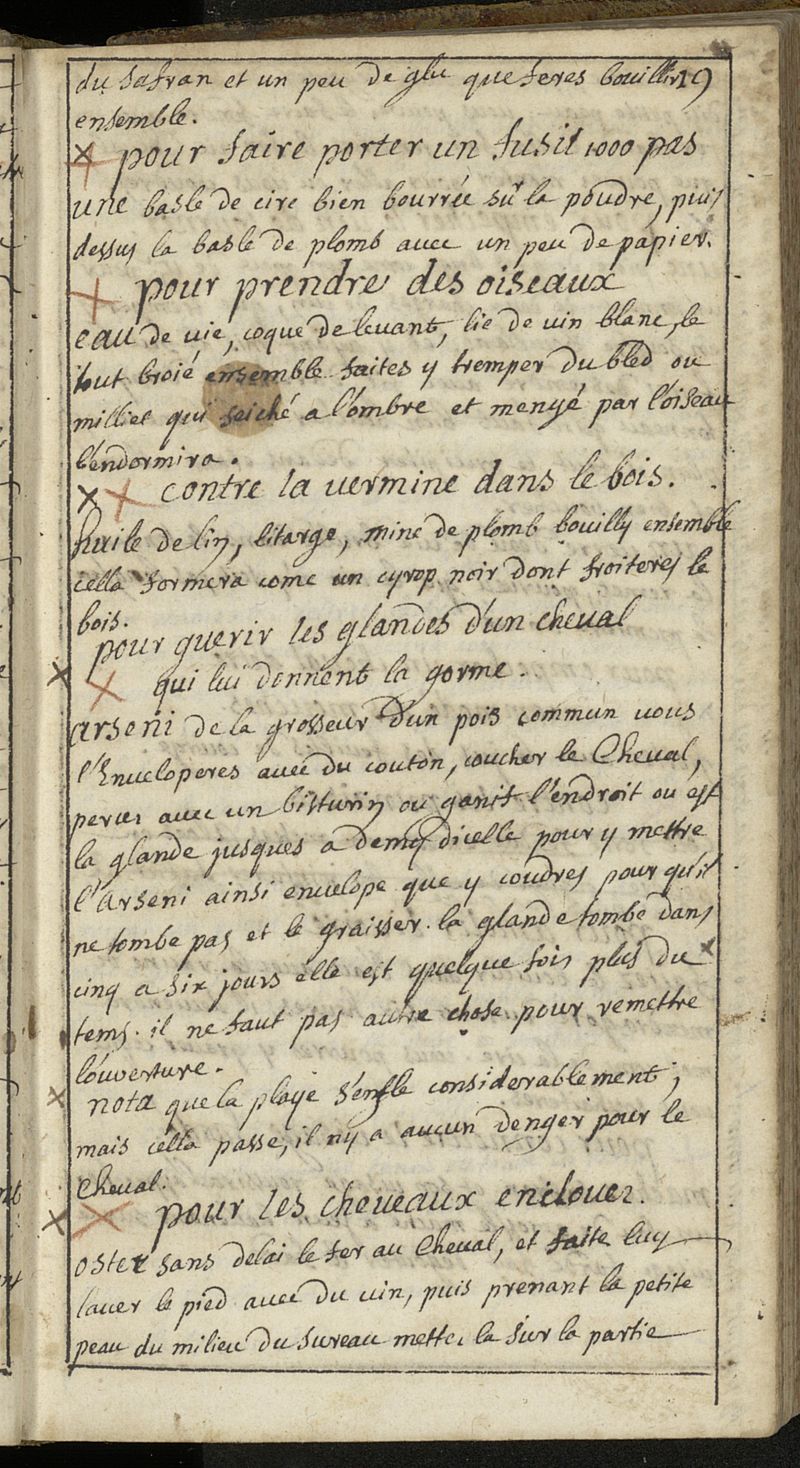 19
du safran et un peu de glu que feres bouillir
ensemble.
pour faire porter un fusil 1000 pas
une basle de cire bien bourrée sur la poudre, puis
dessus la basle de plomb avec un peu de papier.
pour prendre des oiseaux
eau de vie, coque de levant, lie de vin blanc, le
tout broié ensemble faites y tremper du bled ou
millet qui seiché a l'ombre et mengé par l'oiseau
l'endormira.
contre la vermine dans le bois.
huile de lin, litarge, mine de plomb bouilly ensemble
cella formera come un cyrop noir dont froiteres le
bois.
pour guerir les glandes d'un cheval
qui lui donnent la gorme.
arseni de la grosseur d'un pois commun vous
l'Enveloperes avec du couton, coucher le Cheval,
percer avec un bisturin ou ganif l'endroit ou est
la glande jusques a demy dicelle pour y mettre
l'Arseni ainsi envelope que y coudres pour qu'il
ne tombe pas et le graisser. la glande tombe dans
cinq a six jours elle est quelque fois plus du
tems. il ne faut pas autre chose pour remettre
l'ouverture.
nota que la playe s'enfle considerablement,
mais cella passe, il ny a aucun denger pour le
Cheval.
pour les cheveaux encloues.
oster sans delai le fer au Cheval, et faite luy
laver le pied avec du vin, puis prenant la petite
peau du milieu du sureau mettes la sur la partie